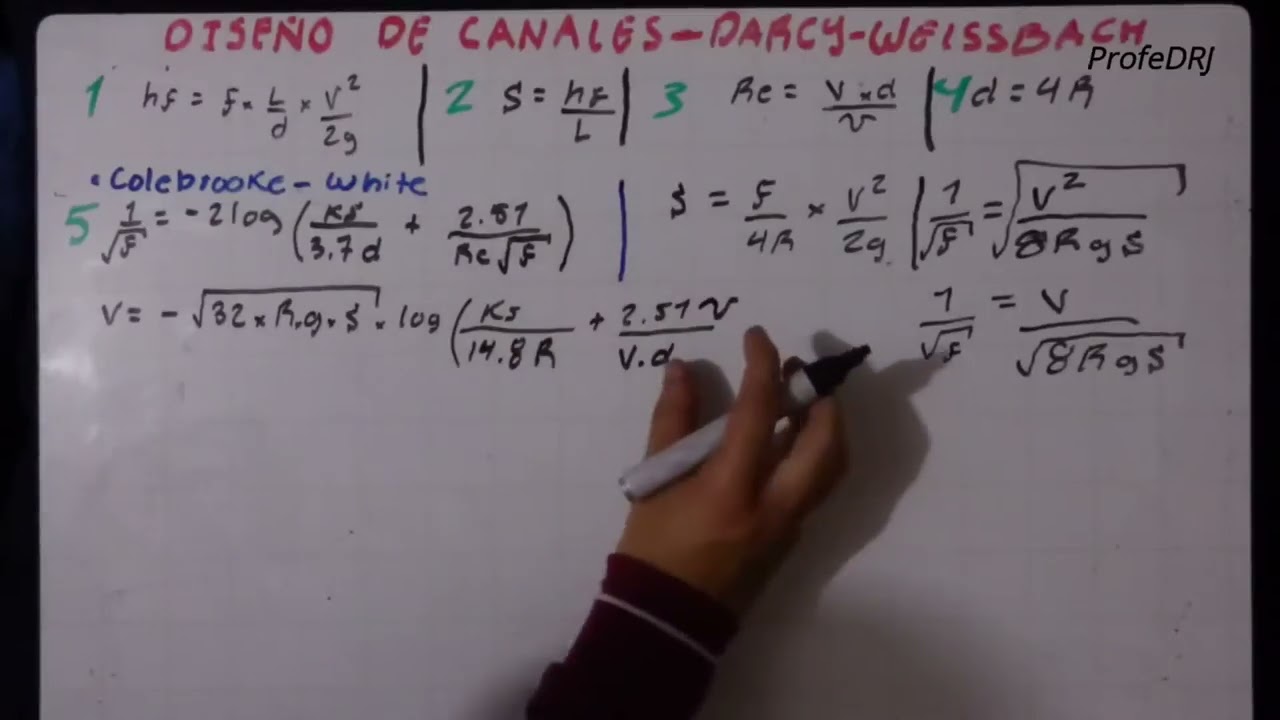 DISEÑO DE CANALES - DARCY-WEISSBACH
ProfeDRJ
1 hf = f * L/d * V²/2g | 2 S = hf/L | 3 Re = V * d/ν | 4 d = 4R
• Colebrooke - White
5 1/√f = -2 log (Ks/3.7d + 2.51/Re√f) | S = f/4R * V²/2g | 1/√f = √(V²/8RgS)
V = -√(32 * R.g.S) . log (Ks/14.8R + 2.51ν/V.d
1/√f = V/√(8RgS)